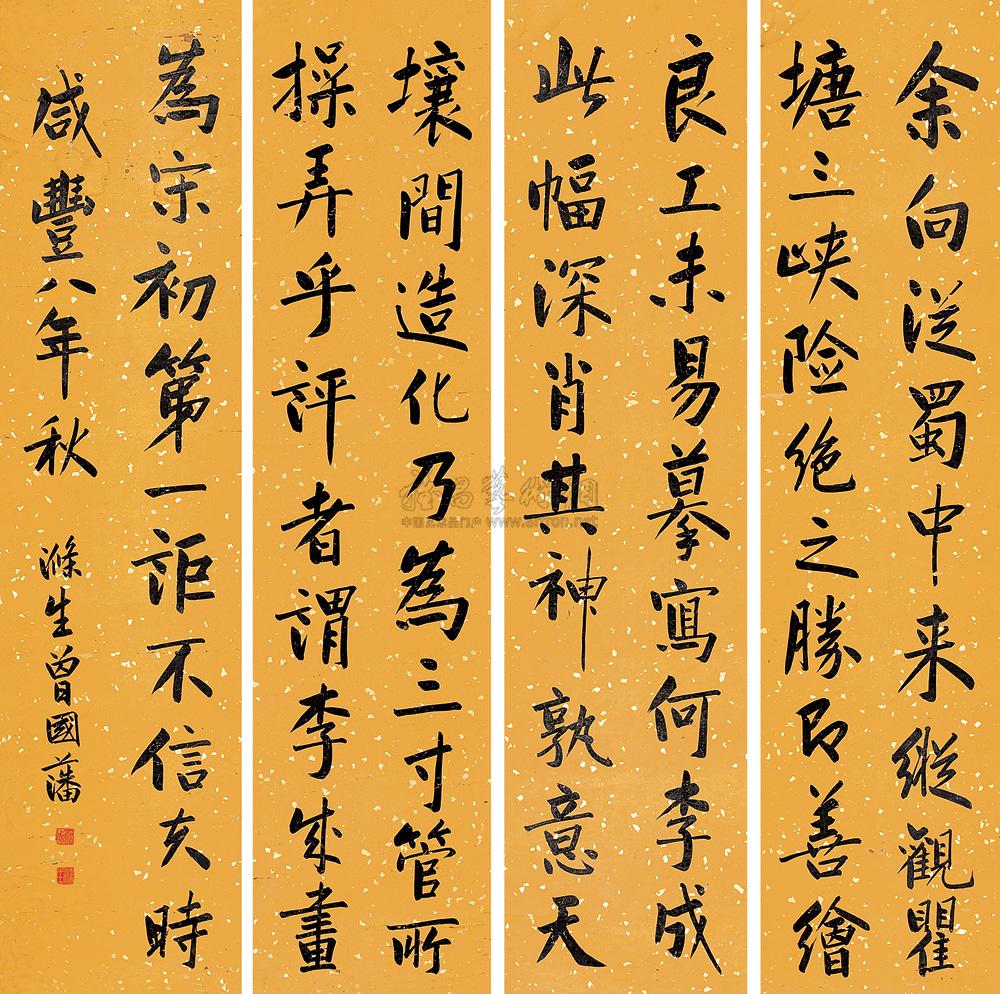 余向从蜀中来縱觀瞿
塘三峡险绝之勝即善繪
良工未易摹寫何李成
此幅深肖其神孰意天
壤間造化乃為三寸管所
操弄乎评者謂李成畫
為宋初第一詎不信夫時
咸豐八年秋 滌生曾國藩